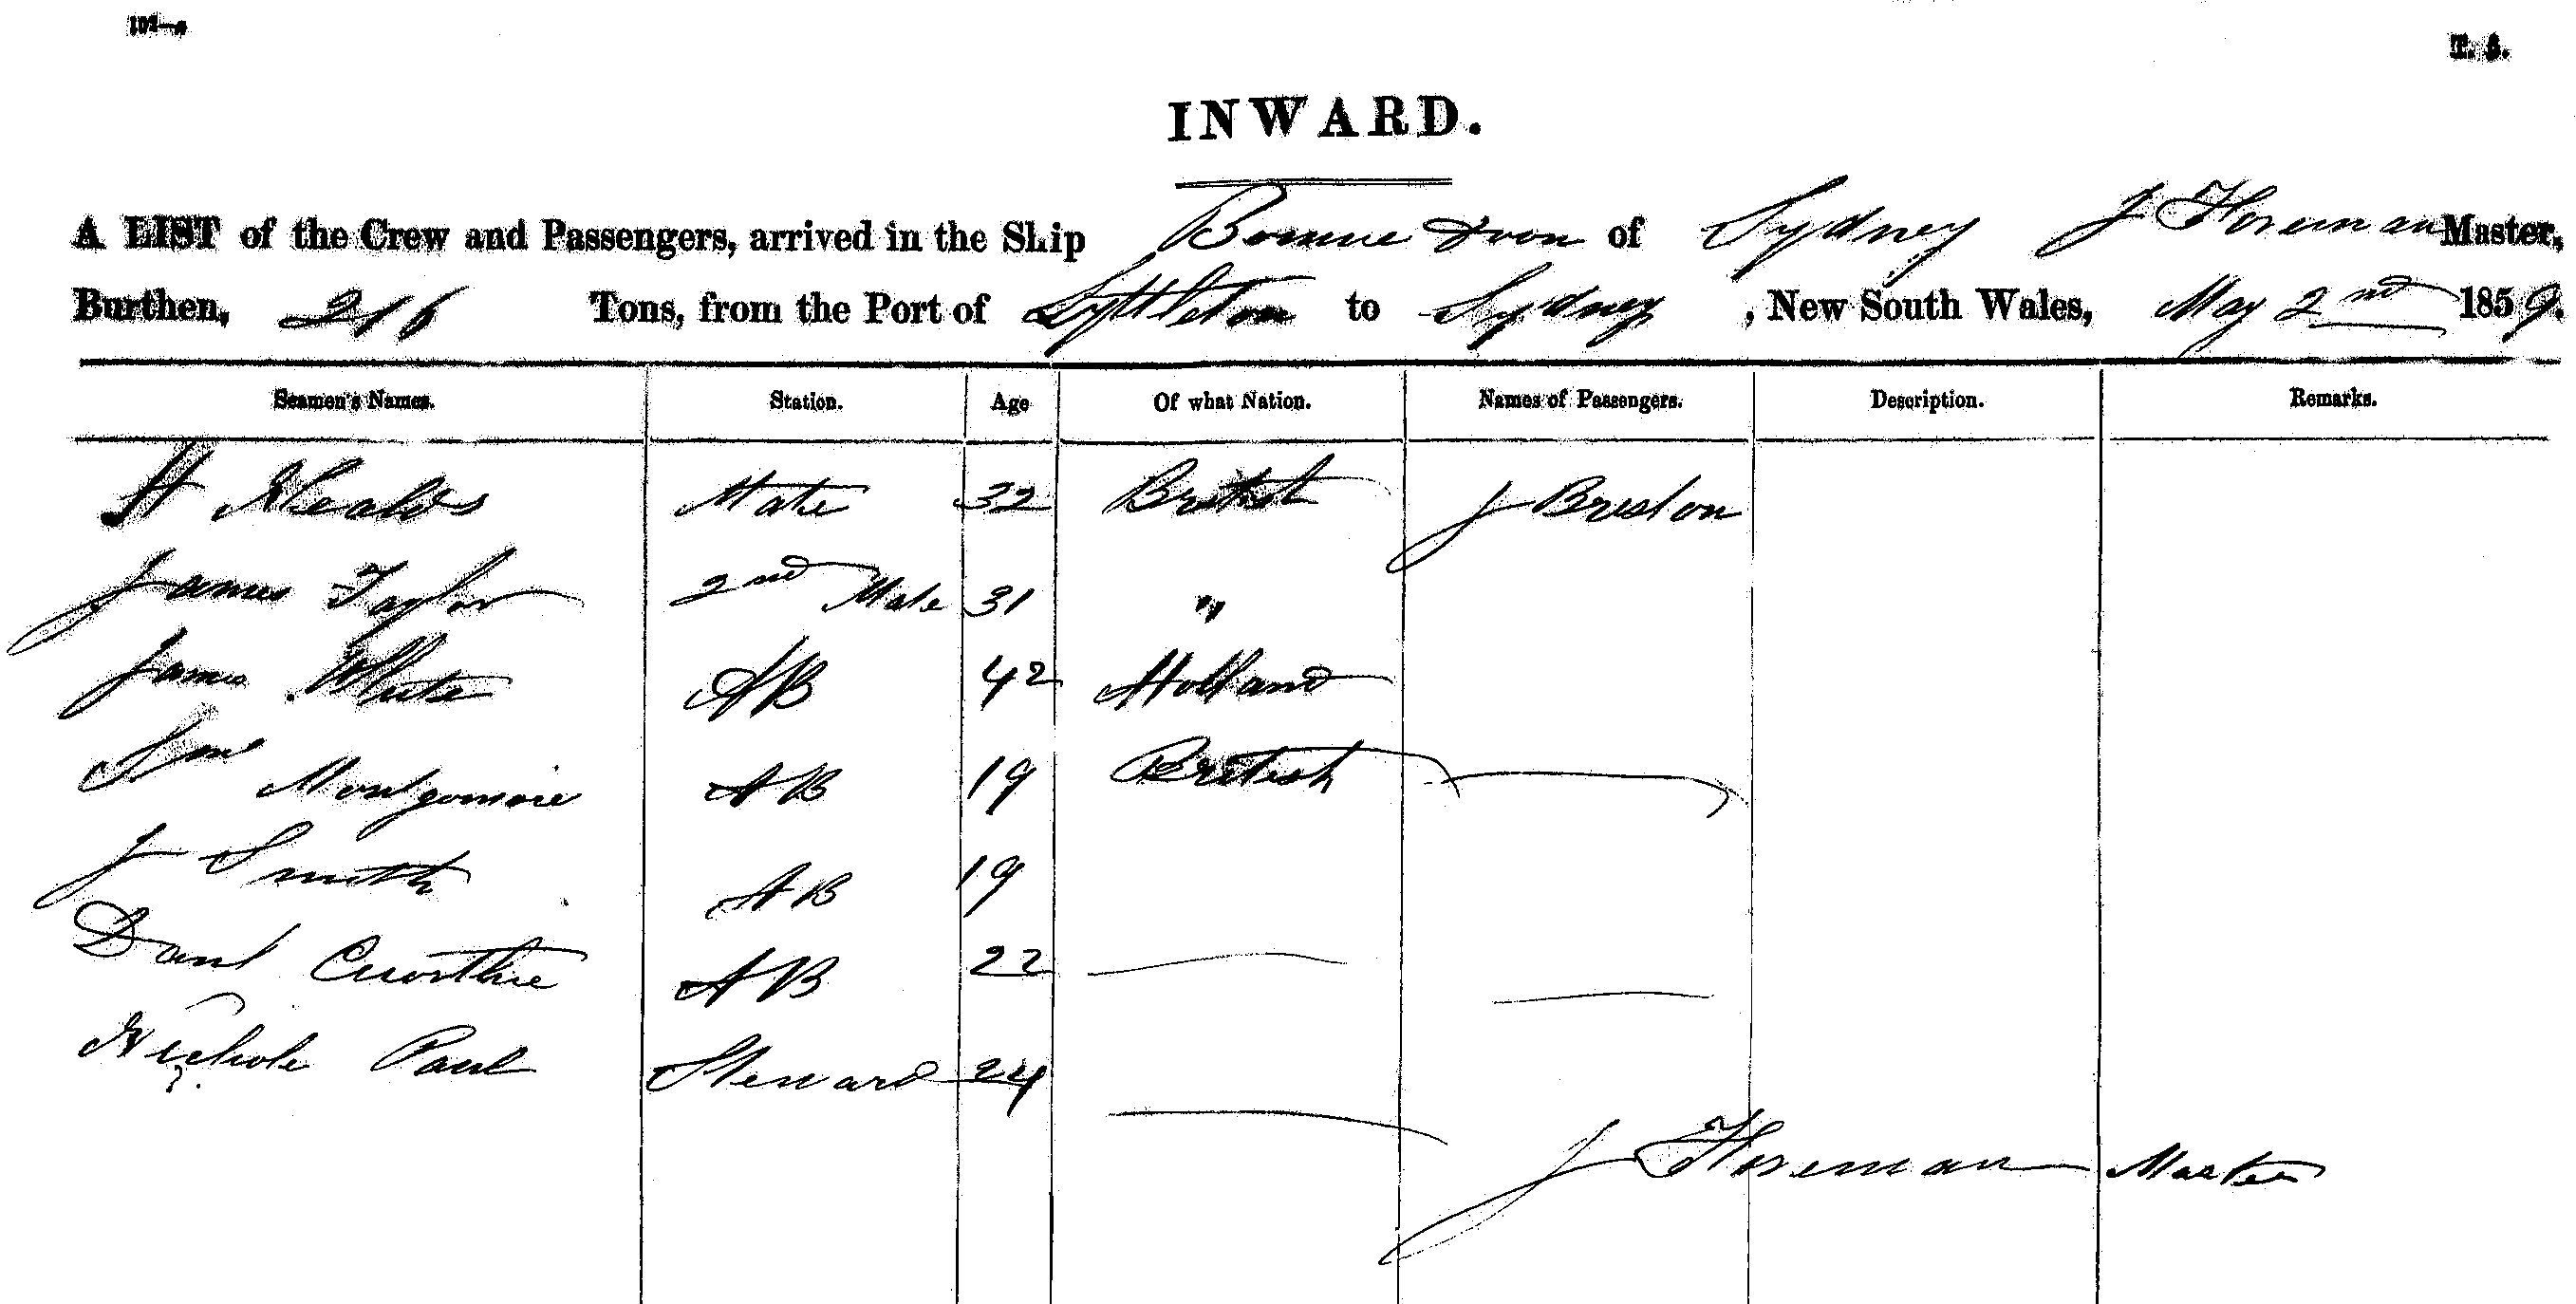 INWARD.
A LIST of the Crew and Passengers, arrived in the Ship Bonnie Doon of Sydney J Floreman Master,
Burthen, 216 Tons, from the Port of Lyttleton to Sydney, New South Wales, May 2nd 1859.
Seamen's Names. Station. Age Of what Nation. Names of Passengers. Description. Remarks.
H Mate 32 British J
James Taylor 2nd Mate 31 "
James White AB 42 Holland
Montgomerie AB 19 British
J Smith AB 19
AB 22
Paul Steward 24
J Floreman Master